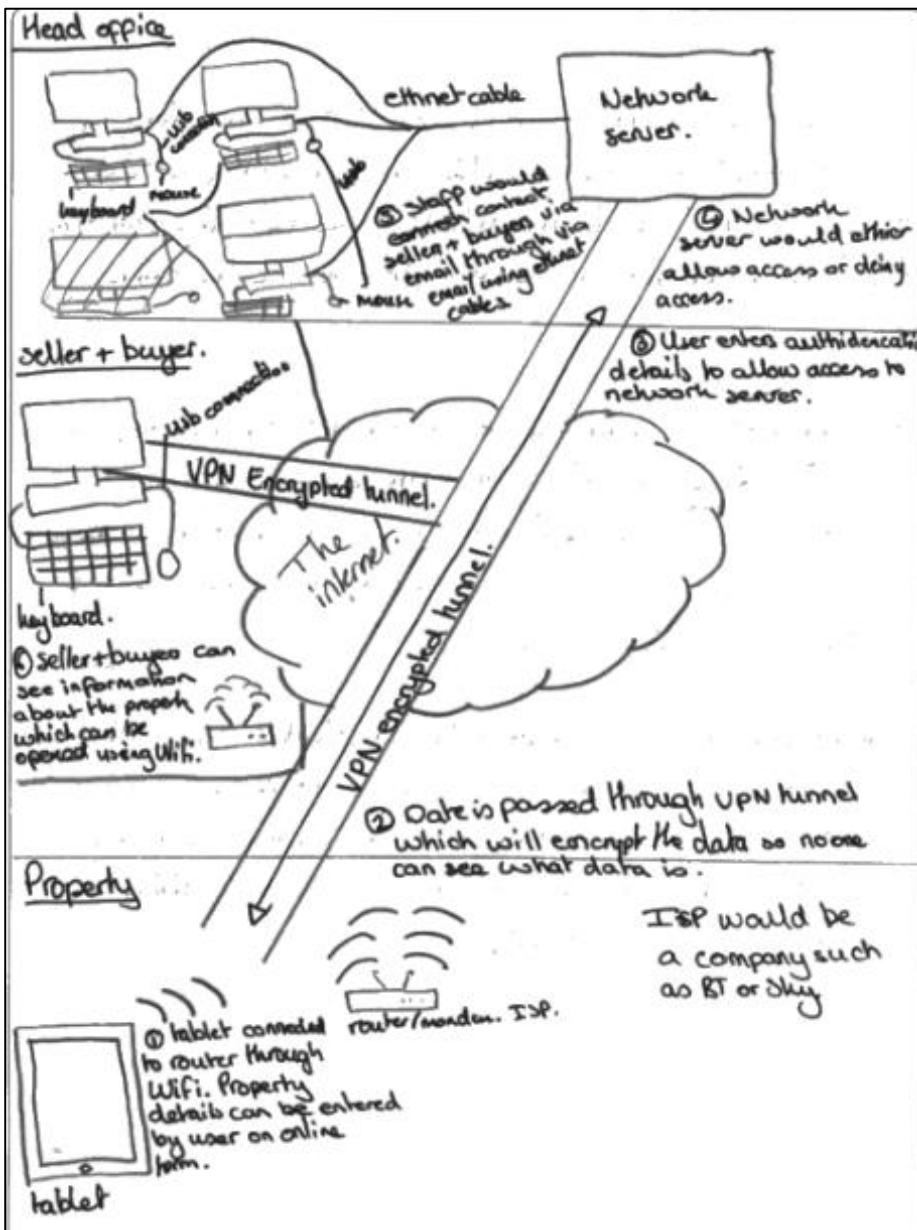 Head office
ethnet cable
Network
server.
usb
connection
keyboard
mouse
usb
mouse
⑤ Staff would
contact
seller + buyers via
email through via
email using ethnet
cables
④ Network
server would ethior
allow access or deiny
access.
seller + buyer.
usb connection
③ User enters authidencation
details to allow access to
network server.
VPN Encrypted tunnel.
The
internet.
VPN encrypted tunnel.
keyboard.
seller + buyers can
see information
about the property
which can be
opened using Wifi.
② Date is passed through VPN tunnel
which will encrypt the data so no one
can see what data is.
Property
ISP would be
a company such
as BT or Sky
router/mondem. ISP.
① tablet connected
to router through
Wifi. Property
details can be entered
by user on online
form.
tablet